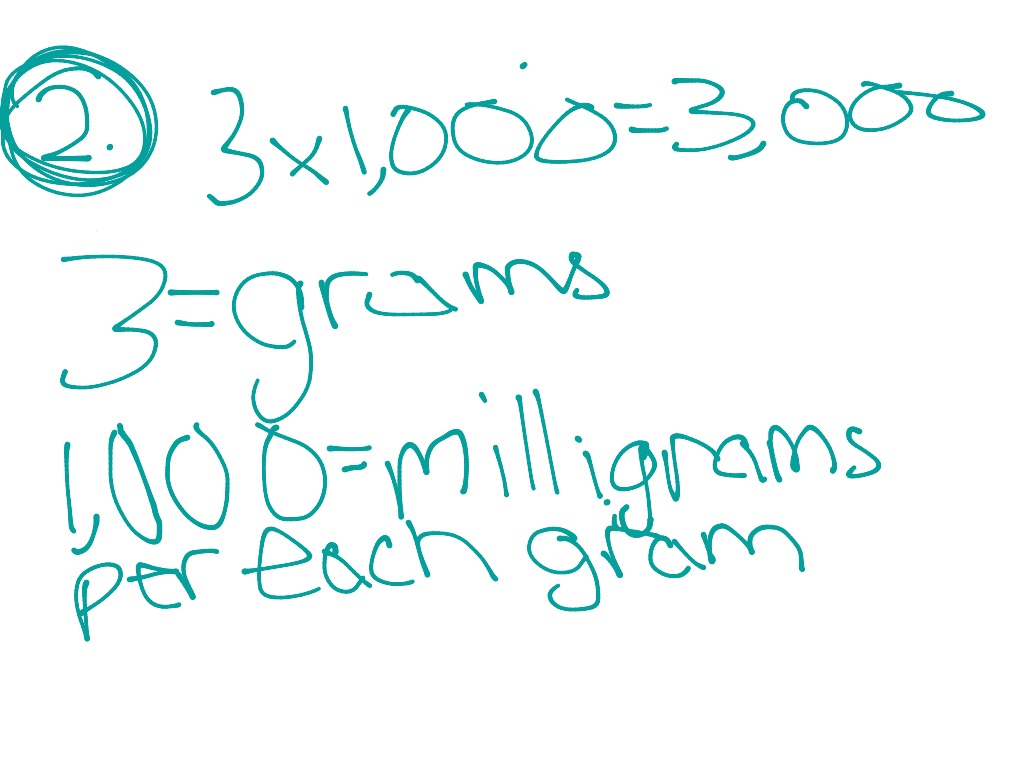 2. 3x1,000=3,000
3=grams
1,000=milligrams
per each gram